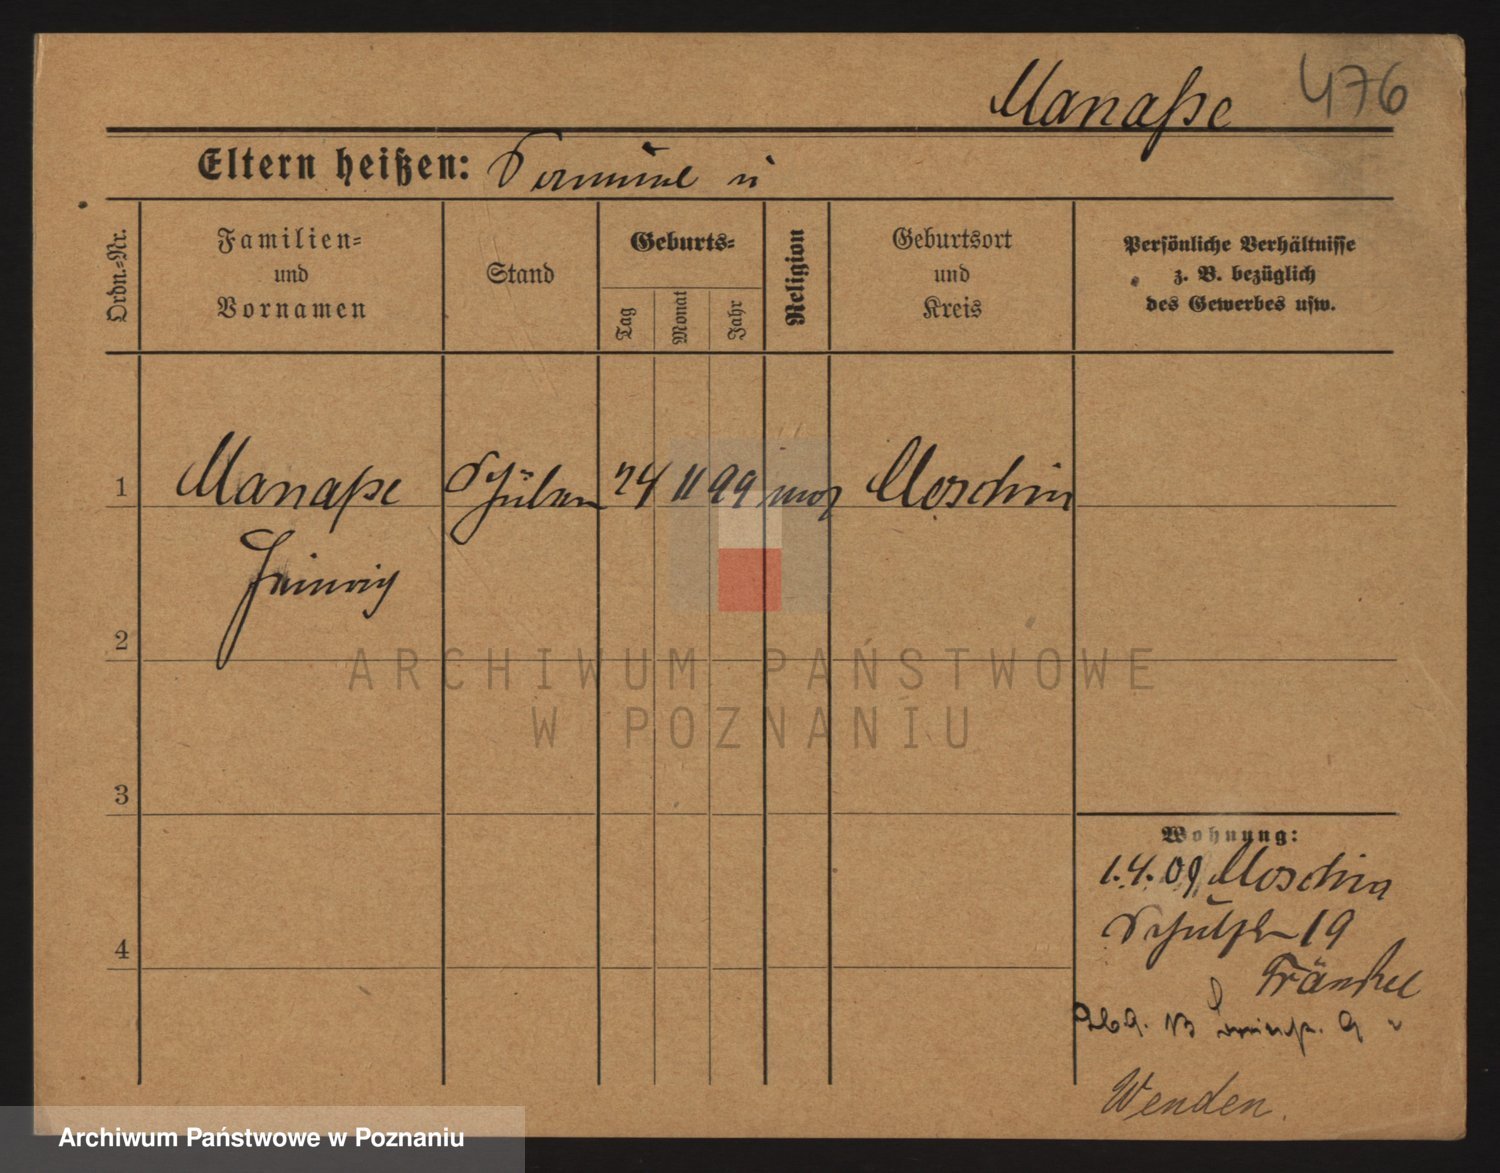 Manaße 476
Eltern heißen: Samuel u
Ordn.-Nr.
Familien-
und
Vornamen
Stand
Geburts-
Tag
Monat
Jahr
Religion
Geburtsort
und
Kreis
Persönliche Verhältnisse
z. B. bezüglich
des Gewerbes usw.
1 Manaße Schüler 24 11 99 mos Moschin
Heinrich
2
3
4
Wohnung:
1.4.09 Moschin
19
Fränkel
Wenden.
ARCHIWUM PAŃSTWOWE
W POZNANIU
Archiwum Państwowe w Poznaniu